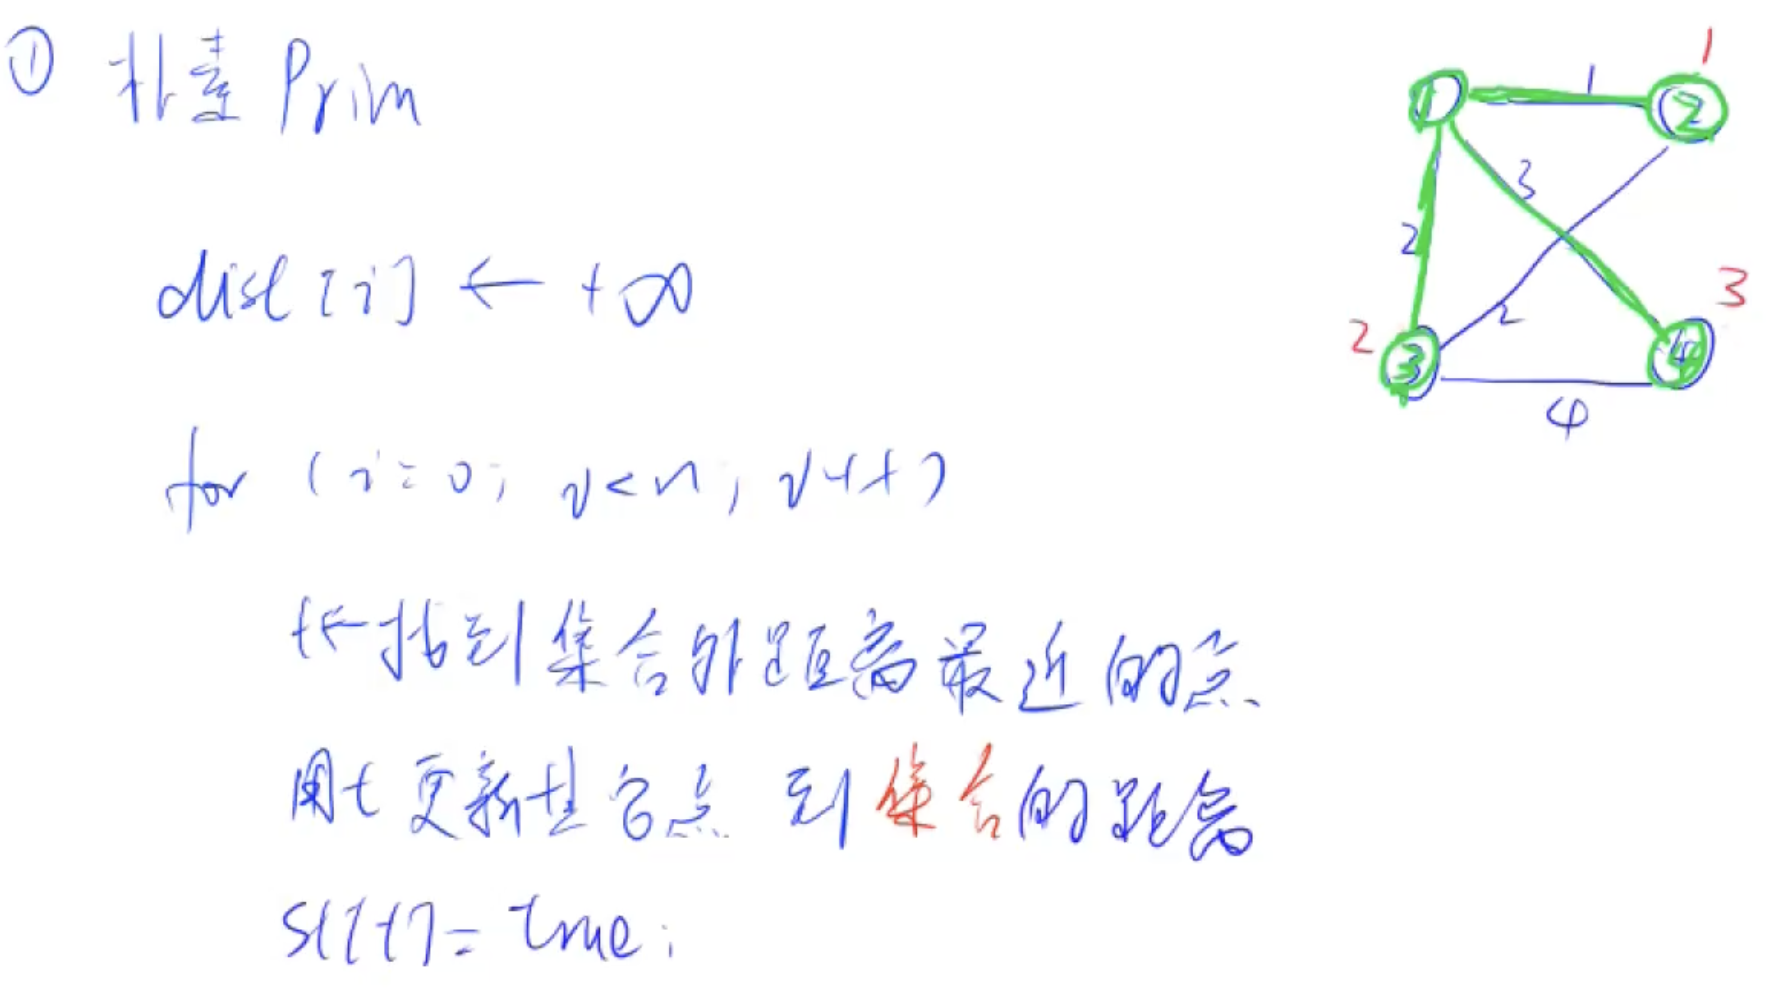 ① 朴素 Prim
dist[i] ← +∞
for (i=0; i<n; i++)
t←找到集合外距离最近的点
用t更新其它点 到集合的距离
st[t]=true;
1
1
1
2
3
2
3
2
2
3
4
4